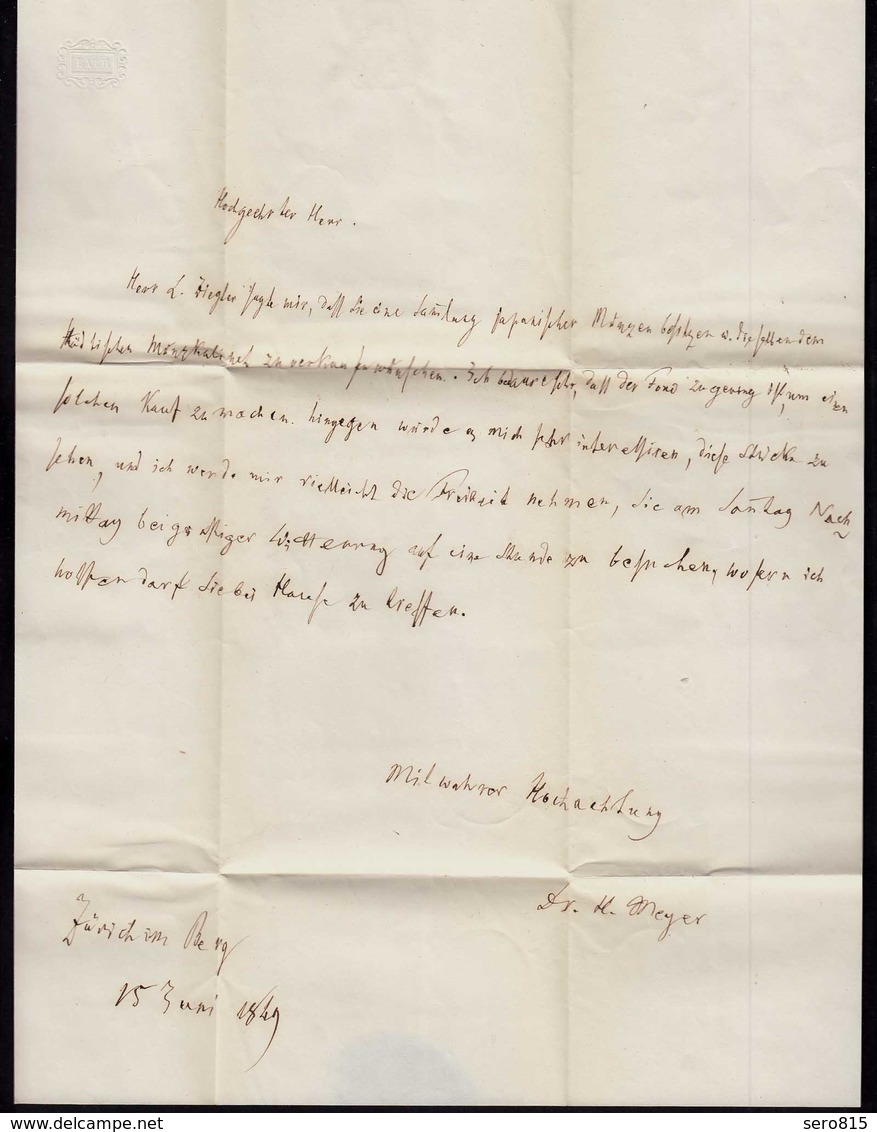 BATH
Hochgeehrter Herr.
Herr L. Ziegler sagte mir, daß Sie eine Samlung japanischer Münzen besitzen u. dieselben dem
städtischen Münzkabinet zu verkaufen wünschen. Ich bedaure sehr, daß der Fond zu gering ist, um einen
solchen Kauf zu machen. hingegen würde es mich sehr interessiren, diese Stücke zu
sehen, und ich werde mir vielleicht die Freiheit nehmen, Sie am Sontag Nach
mittag bei günstiger Witterung auf eine Stunde zu besuchen, wofern ich
hoffen darf Sie bei Hause zu treffen.
Mit wahrer Hochachtung
Dr. H. Meyer
Zürich im Berg
15 Juni 1849
delcampe.net
sero815